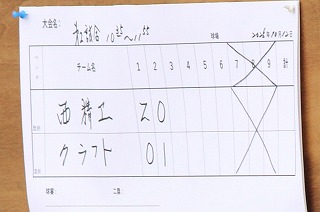 大会名: 第2試合 10:35〜11:55
球場 2025年10月12日
チーム名 1 2 3 4 5 6 7 8 9 計
西精工 2 0
クラフト 0 1
球審: 二塁: